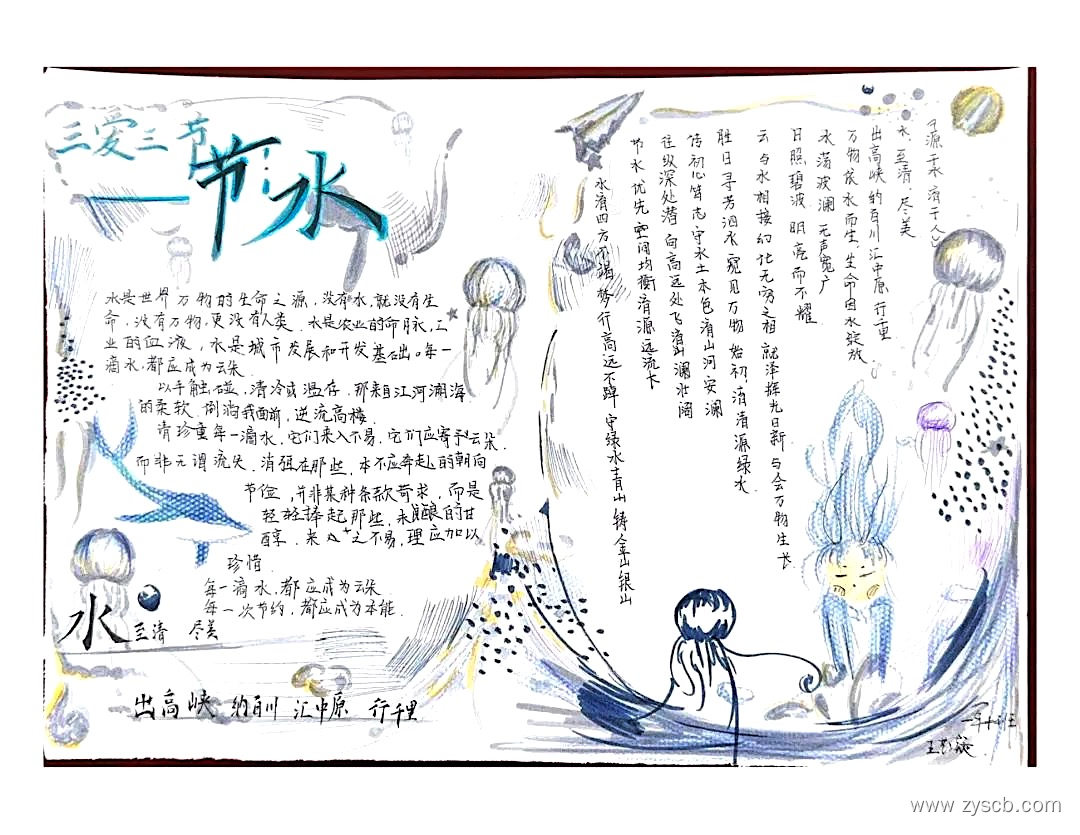 三爱三节
——节水
水是世界万物的生命之源，没有水就没有生
命，没有万物，更没有人类。水是农业的命脉，工
业的血液，水是城市发展和开发基础出。每一
滴水，都应成为云朵
以手触碰，清冷或温存，那来自江河湖海
的柔软，倒淌我面前，逆流高楼
请珍重每一滴水，它们来入不易，它们应寄予云朵
而非无谓流失，消弭在那些，本不应奔赴的朝向
节俭，并非某种条款苛求，而是
轻轻捧起那些，水酿的甘
醇，来之不易，理应加以
珍惜
每一滴水，都应成为云朵
每一次节约，都应成为本能
水 至清 尽美
出高峡 纳百川 汇中原 行千里
源于水 济于人
水 至清 尽美
出高峡 纳百川 汇中原 行重
万物依水而生，生命因水绽放
水荡波澜 无声宽广
日照碧波 明亮而不耀
云与水相接幻化无穷之相 就泽辉光日新 与会万物生长
胜日寻芳泗水 宽见万物始初 消清源绿水
传初心笃志 守水土本色 清山河安澜
往纵深处潜 向高远处飞 清澜壮阔
节水优先 空间均衡 清源远流长
水清四方不竭 梦行高远不踔 守绿水青山铸金山银山
www.zyscb.com